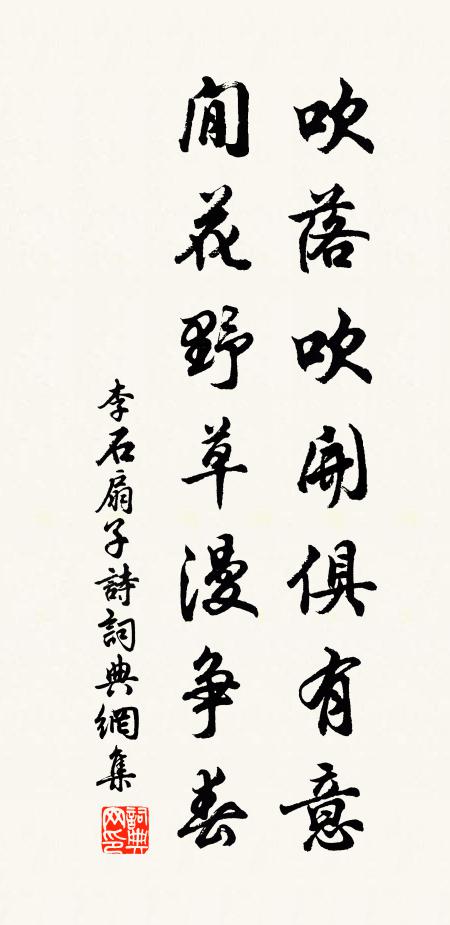 吹落吹開俱有意
閒花野草漫爭春
李石扇子詩詞典網集
詞典网印